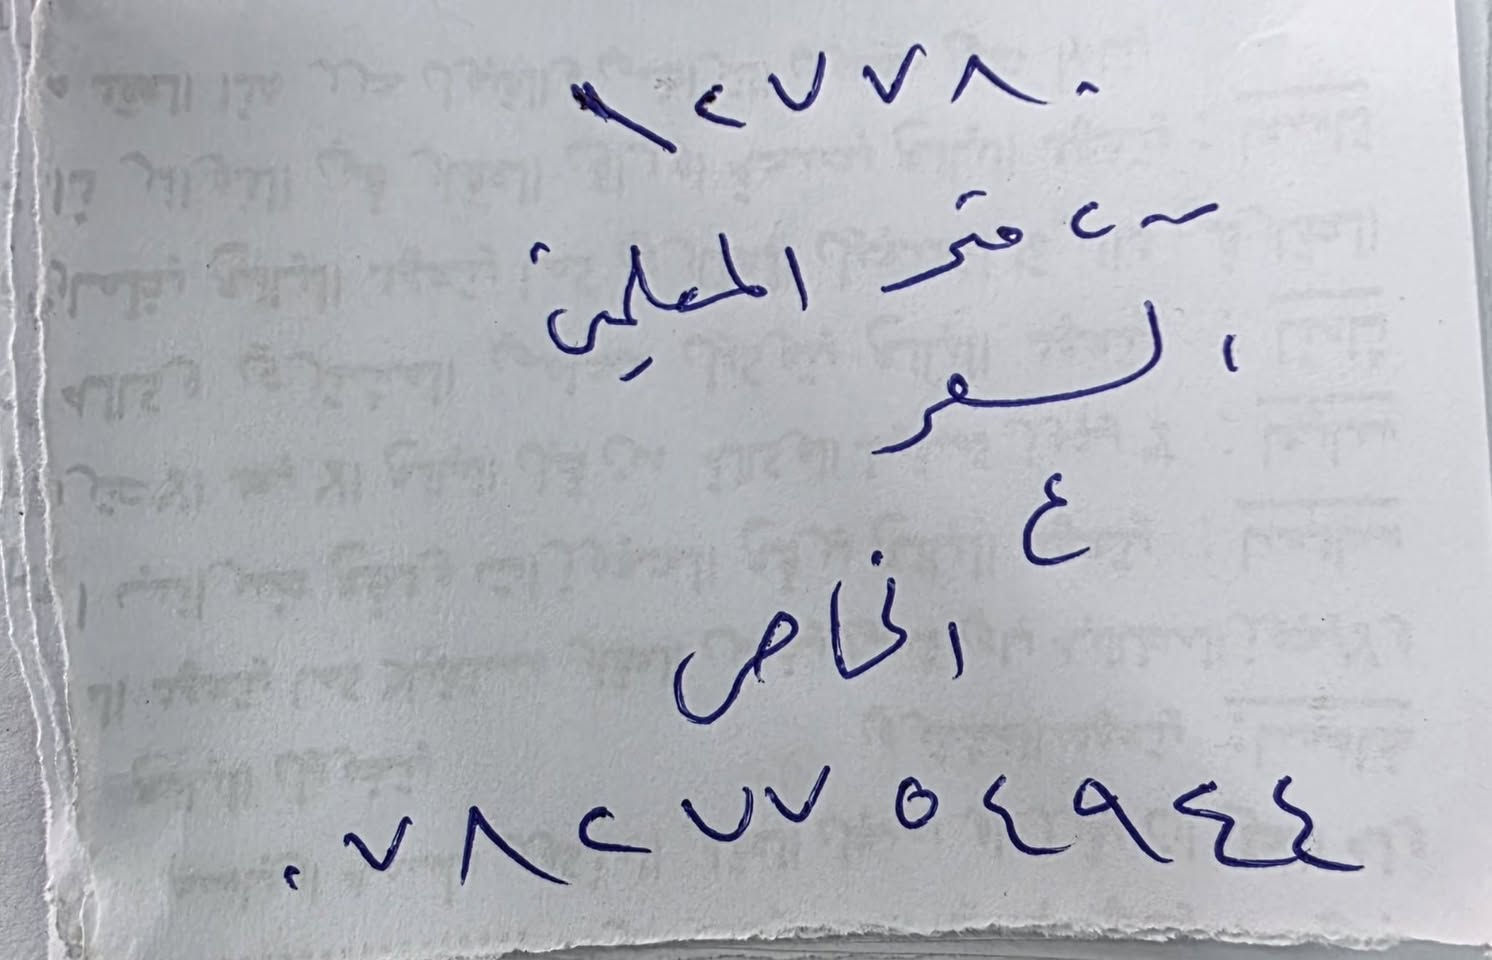 ١٢٧٧٨٠
٢٠٠ متر المعلمين
السعر
ع
الخاص
٠٧٨٢٧٧٥٤٩٤٤